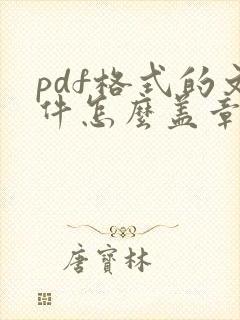 pdf格式的文
件怎麼盖章
唐寶林